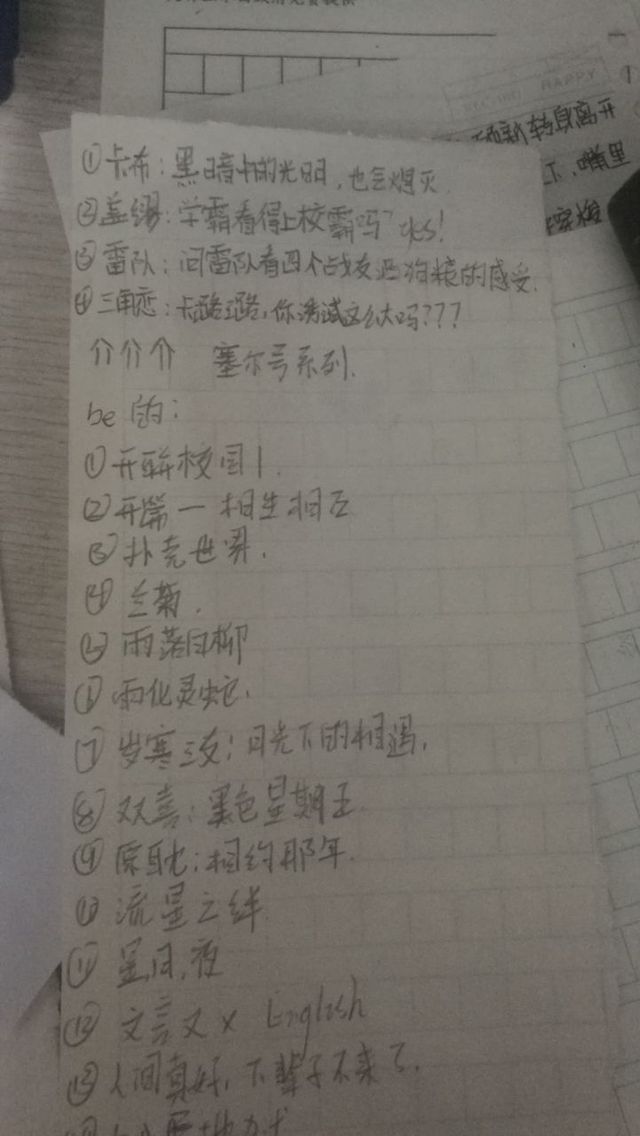 HAPPY
转身离开
嘴里
①卡布：黑暗中的光明，也会熄灭.
②盖缪：学霸看得上校霸吗？yes！
③雷队：问雷队看四个战友洒狗粮的感受.
④三角恋：卡璐璐，你诱惑这么大吗???
↑↑↑ 塞尔号系列.
be的：
①开 校园1.
②开篇一相生相互
③扑克世界.
④兰菊.
⑤雨落日柳
⑥雨化灵蛇.
⑦岁寒三友：月光下的相遇.
⑧双喜：黑色星期五
⑨ ：相约那年.
⑩流星之绊
⑪星月，夜
⑫文言文×English
⑬人间真好，下辈子不来了.